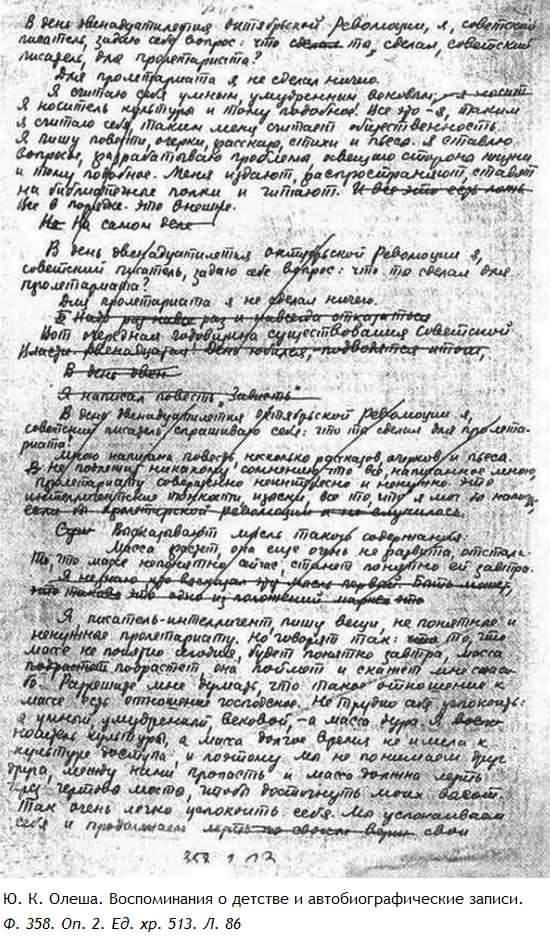 В день двенадцатилетия октябрьской Революции, я, советский
писатель, задаю себе вопрос: что сделал то, сделал, советский
писатель, для пролетариата?
Для пролетариата я не сделал ничего.
Я считаю себя умным, умудренным вековой; я носит
Я носитель культуры и тому подобное! Все это – я, таким
я считаю себя, таким меня считает общественность.
Я пишу повести, очерки, рассказы, стихи и пьесы. Я ставлю
вопросы, разрабатываю проблемы, освещаю стороны жизни
и тому подобное. Меня издают, распространяют, ставят
на библиотечные полки и читают. И все это есть ложь
Все в порядке. Это внешне.
Не На самом деле
В день двенадцатилетия октябрьской Революции я,
советский писатель, задаю себе вопрос: что ты сделал для
пролетариата?
Для пролетариата я не сделал ничего.
Надо раз навсегда раз и навсегда отказаться
Вот очередная годовщина существования Советской
Власти, двенадцатая! День юбилея, – подводятся итоги,
В день двен
Я написал повесть "Зависть"
В день двенадцатилетия октябрьской Революции я,
советский писатель спрашиваю себя: что ты сделал для пролета-
риата?
Мною написаны повесть, несколько рассказов, очерков и пьеса.
Не подлежит никакому сомнению, что всё, написанное мною,
пролетариату совершенно неинтересно и ненужно. Это
интеллигентские тонкости, изыски, все то, что я мог бы написать,
если бы пролетарской революции и не случилось.
Высказывают мысль такого содержания:
Масса растет, она еще очень не развита, отстала.
То, что массе непонятно сейчас, станет понятно ей завтра.
Я не знаю кто высказал эту мысль первый. Быть может,
это одно из положений марксизма что
Я, писатель-интеллигент, пишу вещи, не понятные и
ненужные пролетариату. Но говорят так: что то, что
массе не понятно сегодня, будет понятно завтра, масса
подрастает подрастет она поймет и скажет мне спаси-
бо. Разрешите мне думать, что такое отношение к
массе есть отношение господское. Не трудно себя успокоить:
я умный, умудренный, вековой, – а масса дура. Я
носитель культуры, а масса долгое время не имела к
культуре доступа, и поэтому мы не понимаем друг
друга, между нами пропасть и масса должна переть
через чертово место, чтоб достигнуть моих высот.
Так очень легко успокоить себя. Мы успокаиваем
себя и продолжаем переть по своему верху свои
358 1 513
Ю. К. Олеша. Воспоминания о детстве и автобиографические записи.
Ф. 358. Оп. 2. Ед. хр. 513. Л. 86